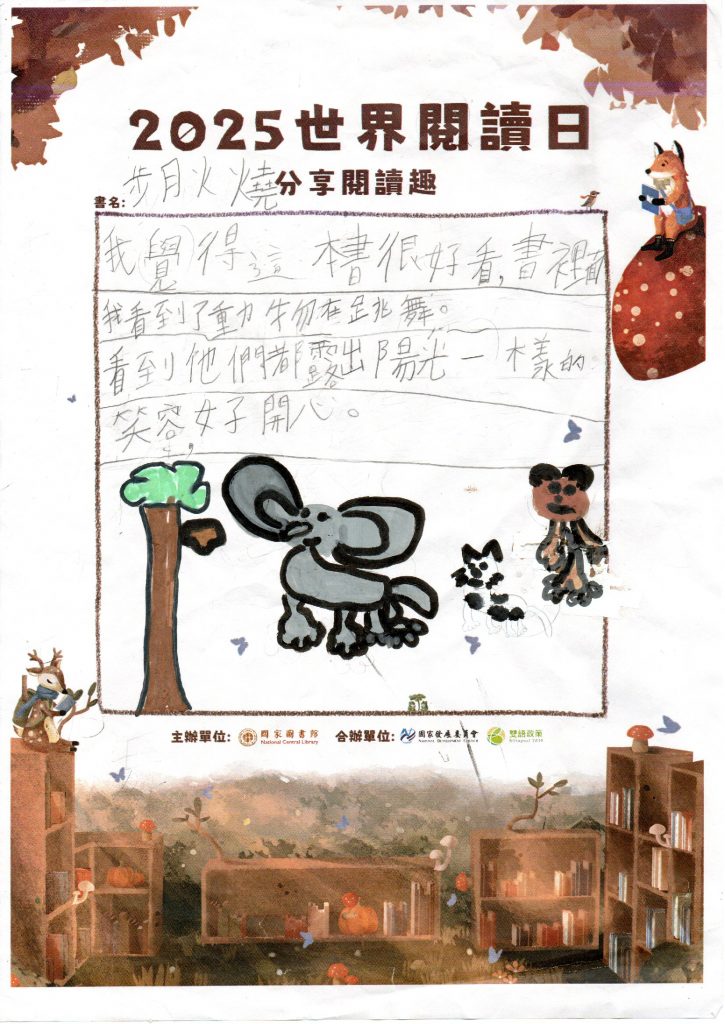 2025世界閱讀日
分享閱讀趣
書名: 步月火燒
我覺得這本書很好看,書裡面
我看到了動物在跳舞。
看到他們都露出陽光一樣的
笑容,好開心。
主辦單位: 國家圖書館 National Central Library 合辦單位: 國家發展委員會 National Development Council 雙語政策 Bilingual 2030